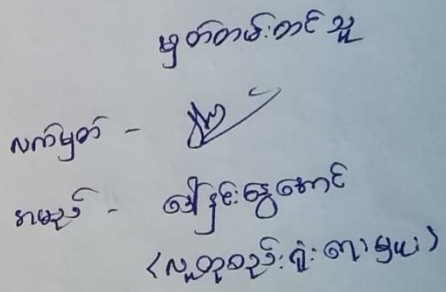 မှတ်တမ်းတင်သူ
လက်မှတ် -
အမည် - နှင်းနွေအောင်
(လူထုစည်းရုံးရေးမှူး)